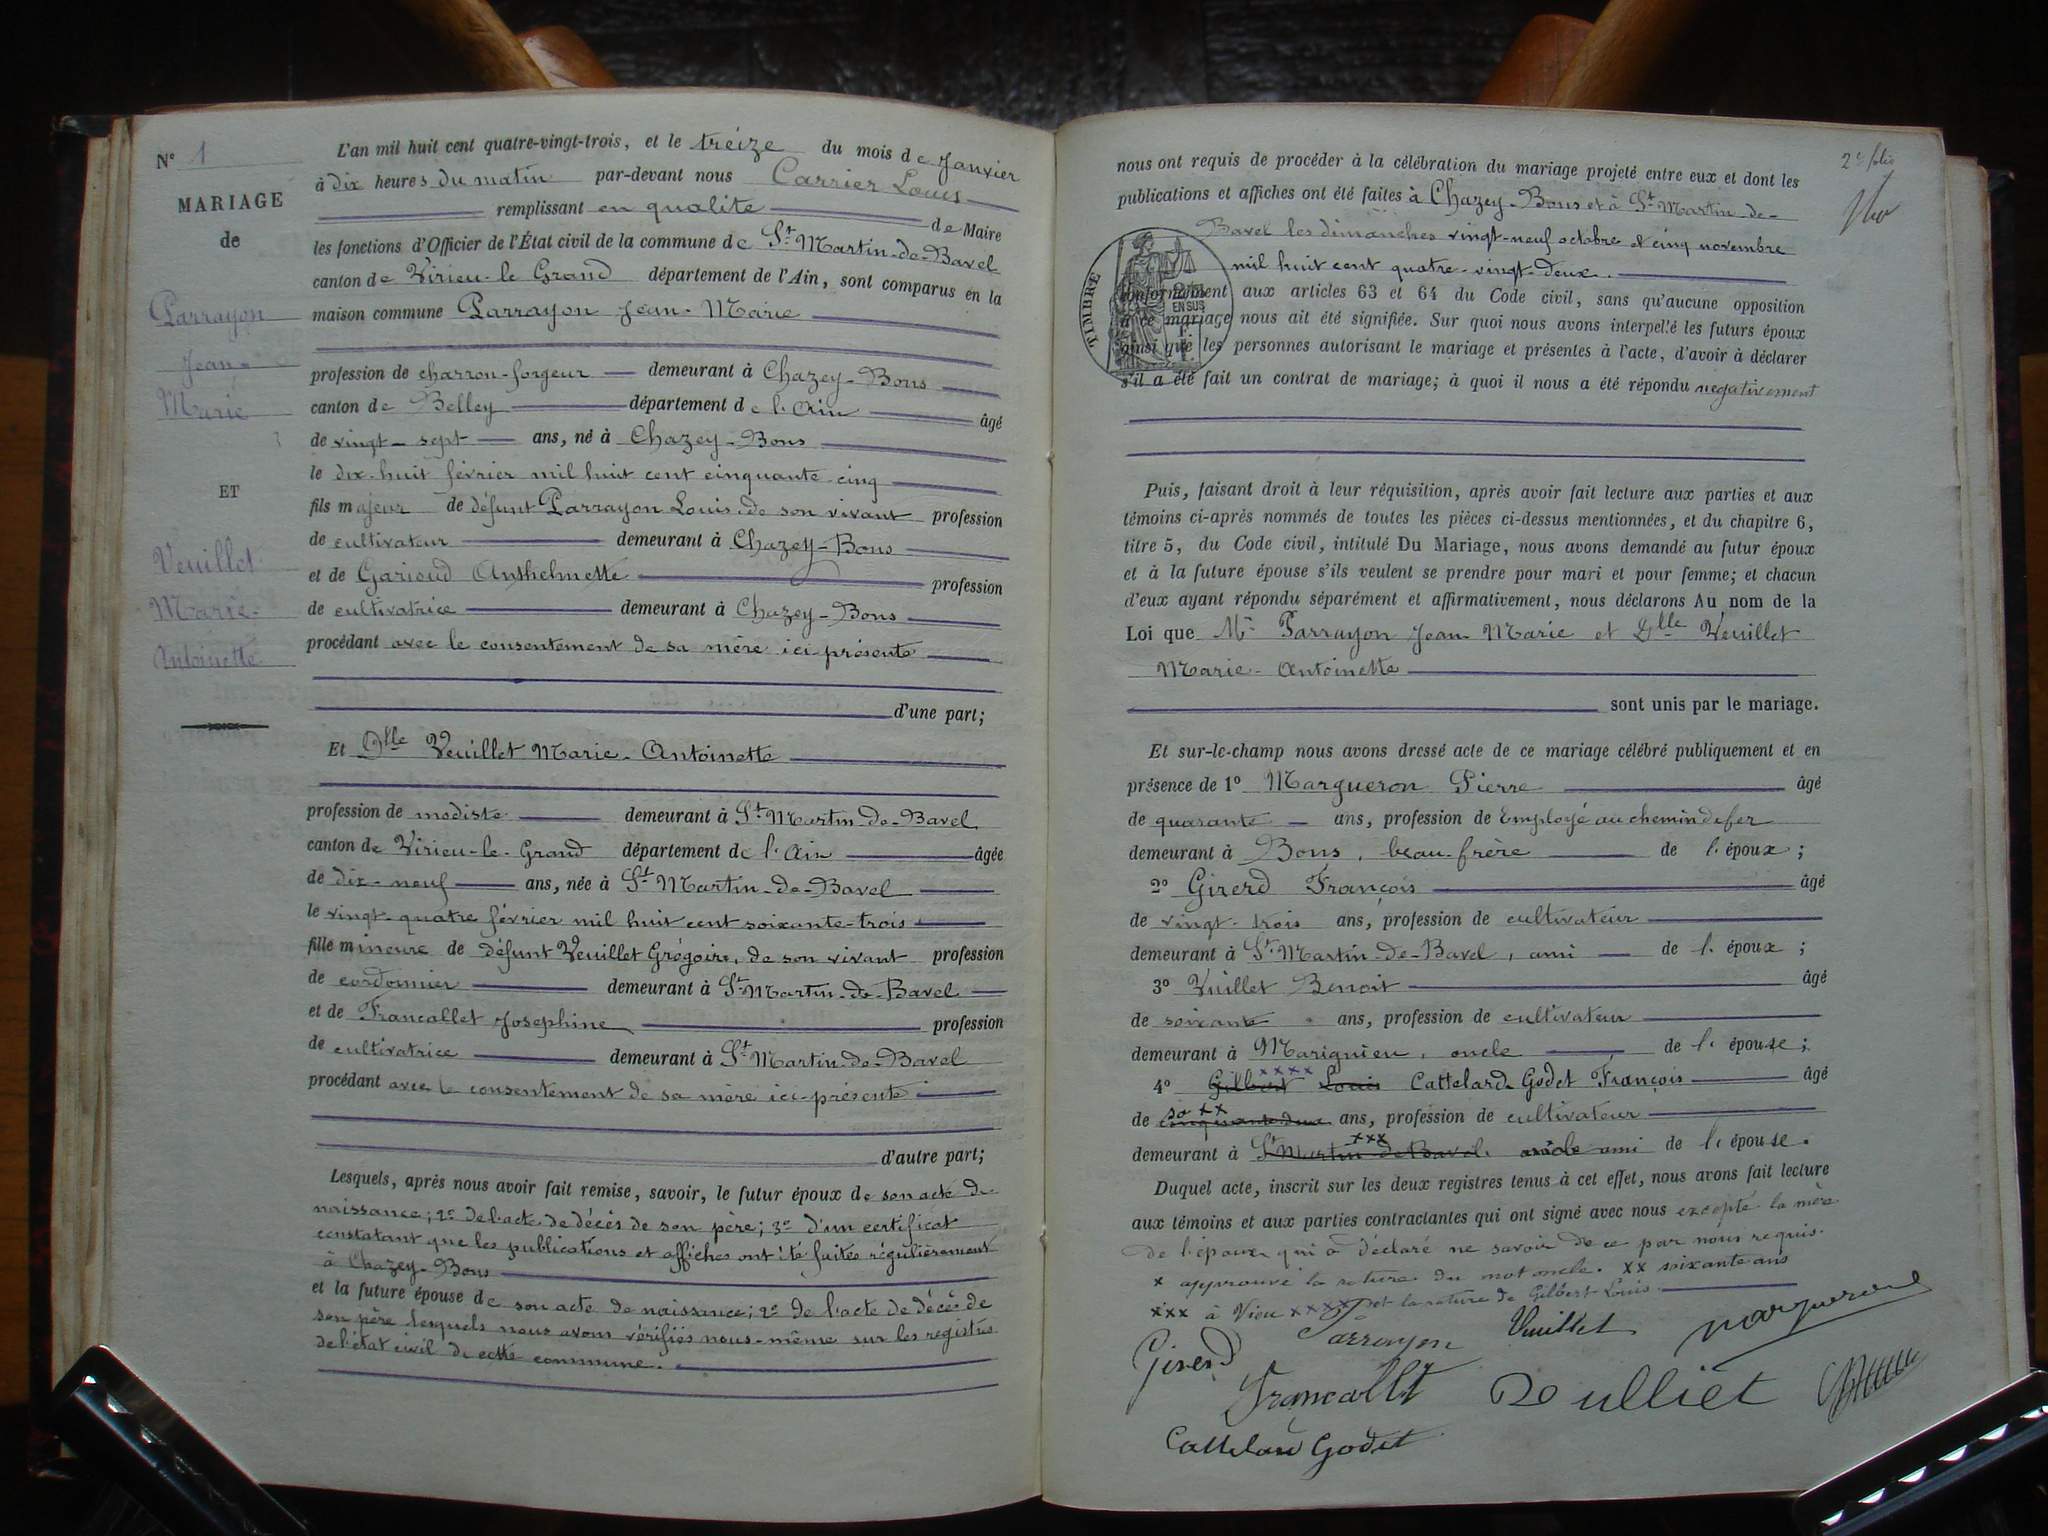 N° 1
MARIAGE
de
Parrayon
Jean-
Marie
ET
Veuillet
Marie-
Antoinette
L'an mil huit cent quatre-vingt-trois, et le treize du mois de Janvier
à dix heures du matin par-devant nous Carrier Louis
remplissant en qualité de Maire
les fonctions d'Officier de l'État civil de la commune de St Martin-de-Bavel
canton de Virieu-le Grand département de l'Ain, sont comparus en la
maison commune Parrayon Jean-Marie
profession de charron-forgeur demeurant à Chazey-Bons
canton de Belley département de l'Ain âgé
de vingt-sept ans, né à Chazey-Bons
le dix-huit février mil huit cent cinquante-cinq
fils majeur de défunt Parrayon Louis de son vivant profession
de cultivateur demeurant à Chazey-Bons
et de Garioud Anthelmette profession
de cultivatrice demeurant à Chazey-Bons
procédant avec le consentement de sa mère ici présente
d'une part;
Et Dlle Veuillet Marie-Antoinette
profession de modiste demeurant à St Martin-de-Bavel
canton de Virieu-le-Grand département de l'Ain âgée
de dix-neuf ans, née à St Martin-de-Bavel
le vingt-quatre février mil huit cent soixante-trois
fille mineure de défunt Veuillet Grégoire, de son vivant profession
de cordonnier demeurant à St Martin-de-Bavel
et de Francallet Josephine profession
de cultivatrice demeurant à St Martin-de-Bavel
procédant avec le consentement de sa mère ici-présente
d'autre part;
Lesquels, après nous avoir fait remise, savoir, le futur époux de son acte de
naissance; 2° de l'acte de décès de son père; 3° d'un certificat
constatant que les publications et affiches ont été faites régulièrement
à Chazey-Bons
et la future épouse de son acte de naissance; 2° de l'acte de décès de
son père lesquels nous avons vérifiés nous-même sur les registres
de l'état civil de cette commune.
2e folio
nous ont requis de procéder à la célébration du mariage projeté entre eux et dont les
publications et affiches ont été faites à Chazey-Bons et à St Martin-de-
Bavel les dimanches vingt-neuf octobre et cinq novembre
mil huit cent quatre-vingt-deux.
TIMBRE
EN SUS
conformément aux articles 63 et 64 du Code civil, sans qu'aucune opposition
à ce mariage nous ait été signifiée. Sur quoi nous avons interpellé les futurs époux
ainsi que les personnes autorisant le mariage et présentes à l'acte, d'avoir à déclarer
s'il a été fait un contrat de mariage; à quoi il nous a été répondu negativement
Puis, faisant droit à leur réquisition, après avoir fait lecture aux parties et aux
témoins ci-après nommés de toutes les pièces ci-dessus mentionnées, et du chapitre 6,
titre 5, du Code civil, intitulé Du Mariage, nous avons demandé au futur époux
et à la future épouse s'ils veulent se prendre pour mari et pour femme; et chacun
d'eux ayant répondu séparément et affirmativement, nous déclarons Au nom de la
Loi que Mr Parrayon Jean Marie et Dlle Veuillet
Marie-Antoinette
sont unis par le mariage.
Et sur-le-champ nous avons dressé acte de ce mariage célébré publiquement et en
présence de 1° Margueron Pierre âgé
de quarante ans, profession de Employé au chemin de fer
demeurant à Bons, beau-frère de l'époux;
2° Girerd François âgé
de vingt-trois ans, profession de cultivateur
demeurant à St Martin-de-Bavel, ami de l'époux;
3° Vuillet Benoit âgé
de soixante ans, profession de cultivateur
demeurant à Marignieu, oncle de l'épouse;
xxxx
4° Gilbert Louis Cattelard Godet François âgé
xx
de cinquante deux ans, profession de cultivateur
xxx
demeurant à St Martin de Bavel. oncle ami de l'épouse.
Duquel acte, inscrit sur les deux registres tenus à cet effet, nous avons fait lecture
aux témoins et aux parties contractantes qui ont signé avec nous excepté la mère
de l'époux qui a déclaré ne savoir de ce par nous requis.
x approuvé la rature du mot oncle. xx soixante ans
xxx à Vieu xxxx et la rature de Gilbert Louis.
Girerd Parrayon Vuillet margueron
Francallet Veulliet
Cattelard Godet